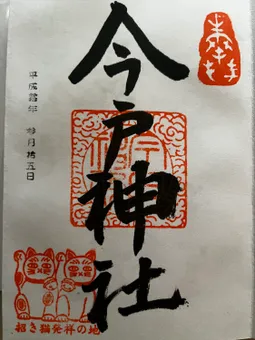 奉拝
今戸神社
平成 年 月拾五日
招き猫発祥の地